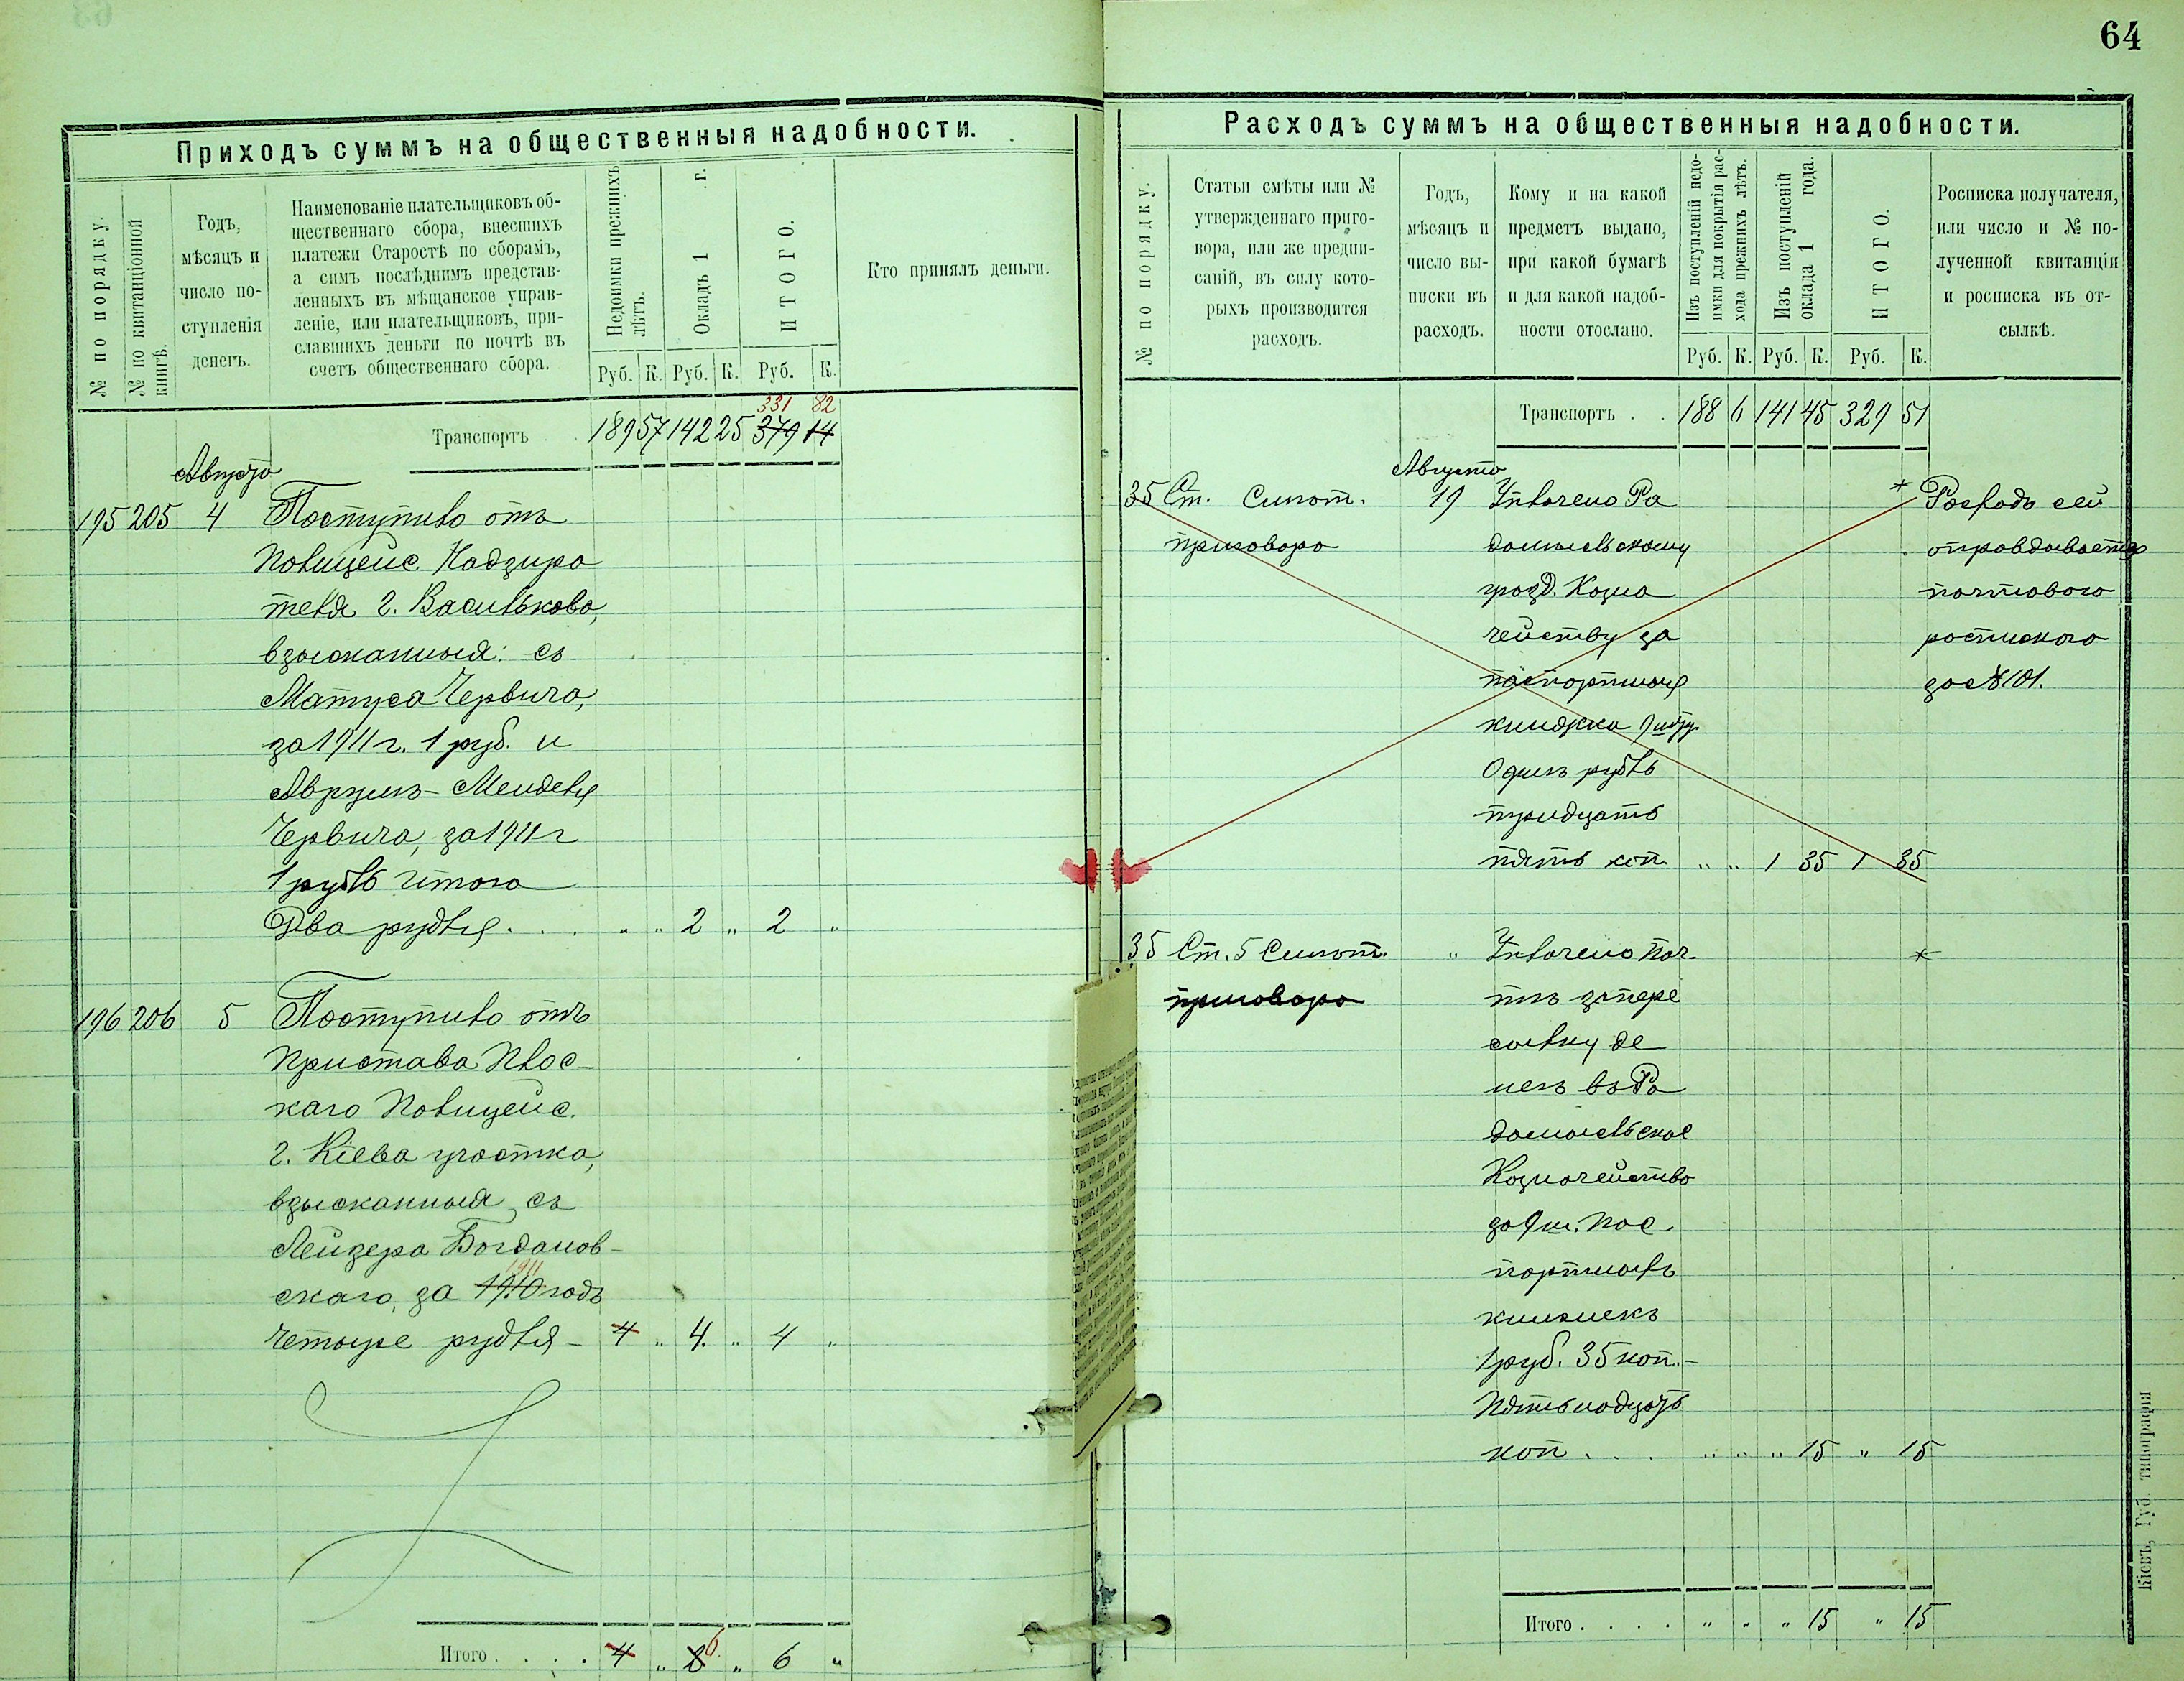 64
Приходъ суммъ на общественныя надобности.
№ по порядку.
№ по квитанціонной
книгѣ.
Годъ,
мѣсяцъ и
число по-
ступленія
денегъ.
Наименованіе плательщиковъ об-
щественнаго сбора, внесшихъ
платежи Старостѣ по сборамъ,
а симъ послѣднимъ представ-
ленныхъ въ мѣщанское управ-
леніе, или плательщиковъ, при-
славшихъ деньги по почтѣ въ
счетъ общественнаго сбора.
Недоимки прежнихъ
лѣтъ.
Окладъ 1 г.
ИТОГО.
Руб. К. Руб. К. Руб. К.
Кто принялъ деньги.
331 82
Транспортъ 189 57 142 25 379 14
Августа
195 205 4 Поступило отъ
Полицейс. Надзира
теля г. Василькова,
взысканныя: съ
Матуса Червича,
за 1911 г. 1 руб. и
Аврумъ-Менделя
Червича, за 1911 г
1 рубль итого
Два рубля . . . „ „ 2 „ 2 „
196 206 5 Поступило отъ
Пристава Плос-
каго Полицейс.
г. Кіева участка,
взысканныя съ
Лейзера Богданов-
1911
скаго, за 1910 годъ
Четыре рубля - 4 „ 4. „ 4 „
Итого . . . . 4 „ 8 6. „ 6 „
Расходъ суммъ на общественныя надобности.
№ по порядку.
Статьи смѣты или №
утвержденнаго приго-
вора, или же предпи-
саній, въ силу кото-
рыхъ производится
расходъ.
Годъ,
мѣсяцъ и
число вы-
писки въ
расходъ.
Кому и на какой
предметъ выдано,
при какой бумагѣ
и для какой надоб-
ности отослано.
Изъ поступленій недо-
имки для покрытія рас-
хода прежнихъ лѣтъ.
Изъ поступленій
оклада 1 года.
ИТОГО.
Руб. К. Руб. К. Руб. К.
Росписка получателя,
или число и № по-
лученной квитанціи
и росписка въ от-
сылкѣ.
Транспортъ . . 188 6 141 45 329 51
Августа
35 Ст. Смѣтн. 19 Уплачено Ра * Расходъ сей
приговора домысльскому оправдывается
Казна почтового
чейству за роспискою
паспортныя за № 101.
книжки 9
Одинъ рубль
тридцать
пять коп. „ „ 1 35 1 35
35 Ст. 5 Смѣтн. „ Уплачено Поч- *
приговора тѣ за пере
сылку де
негъ въ Ра
домысльское
Казначейство
за 9 шт. Пас
портныхъ
книжекъ
1 руб. 35 коп. -
Пятьнадцать
коп . . . „ „ „ 15 „ 15
Итого . . . . „ „ „ 15 „ 15
Кіевъ, Губ. типографія